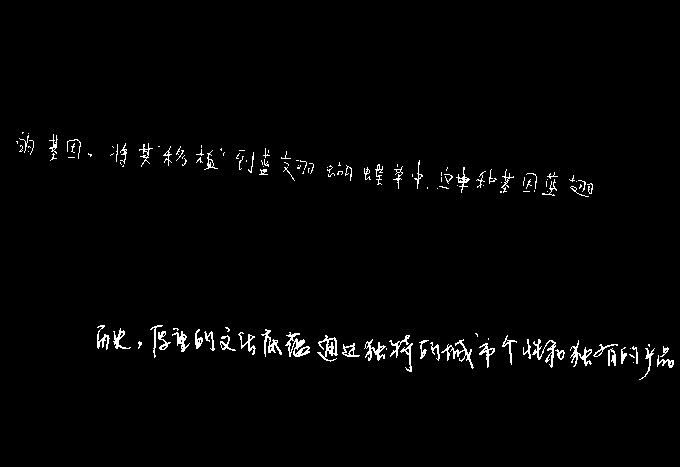 的基因。将其“移植”到蓝翅蝴蝶草中,这种基因蓝翅
历史,厚重的文化底蕴通过独特的城市个性和独有的产品